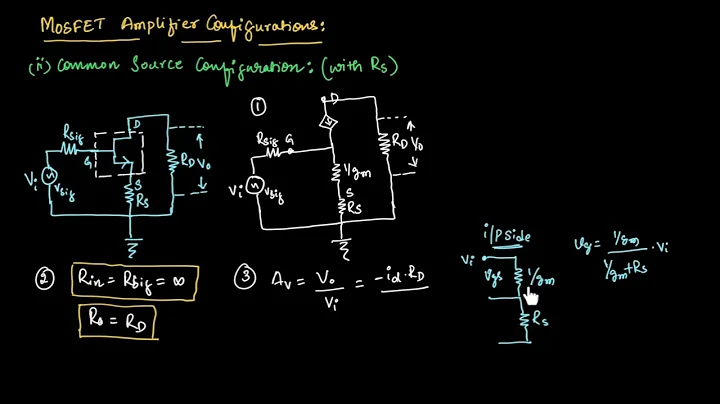 MOSFET Amplifier Configurations:
(ii) Common Source Configuration: (with Rs)
D
Rsig
G
Vi
Vsig
S
Rs
RD
Vo
①
D
Rsig
G
1/gm
S
Rs
Vi
Vsig
RD
Vo
② Rin = Rsig = ∞
Ro = RD
③ Av = Vo/Vi = -id·RD
i/p side
Vi
Vgs
1/gm
Rs
Vg = (1/gm)/(1/gm+Rs) · Vi